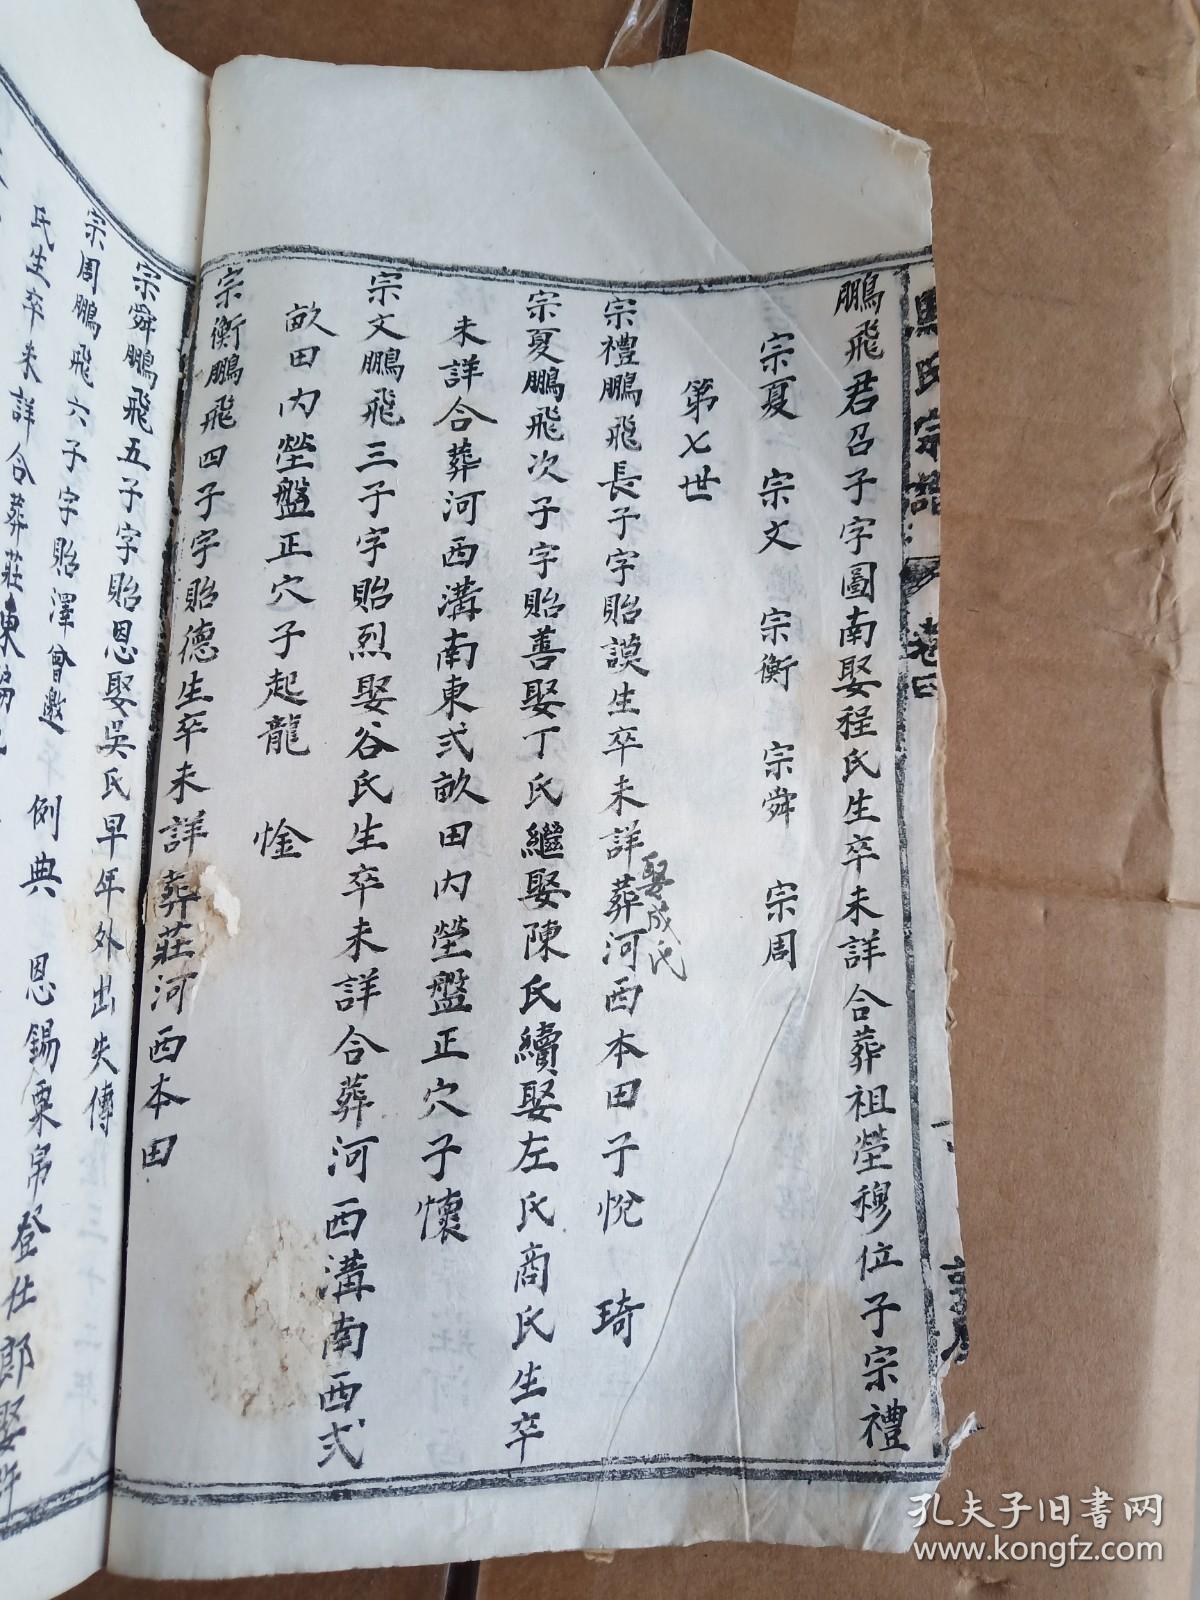 氏宗譜 卷四
鵬飛君召子字圖南娶程氏生卒未詳合葬祖塋穆位子宗禮
宗夏 宗文 宗衡 宗舜 宗周
第七世
宗禮鵬飛長子字貽謨生卒未詳葬河西本田子悅 琦
娶成氏
宗夏鵬飛次子字貽善娶丁氏繼娶陳氏續娶左氏商氏生卒
未詳合葬河西溝南東弍畝田內塋盤正穴子懷
宗文鵬飛三子字貽烈娶谷氏生卒未詳合葬河西溝南西弍
畝田內塋盤正穴子起龍 惍
宗衡鵬飛四子字貽德生卒未詳葬莊河西本田
宗舜鵬飛五子字貽恩娶吳氏早年外出失傳
宗周鵬飛六子字貽澤曾邀 例典 恩錫粟帛登仕郎娶許
氏生卒未詳合葬莊東
孔夫子旧书网
www.kongfz.com